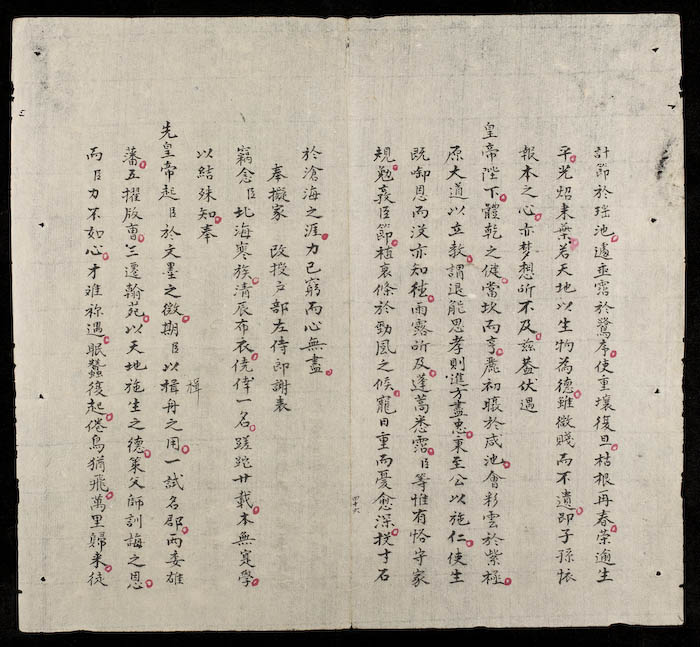 計節於瑤池遽並霑於鴛序使重壤復旦枯根再春榮逾生
平光炤末葉若天地以生物為德雖微賤而不遺即子孫恢
報本之心亦梦想所不及茲蓋伏遇
皇帝陛下體乾之健當坎而亨麗初暾於咸池會彩雲於紫極
原大道以立教謂退能思孝則進方盡忠秉至公以施仁使生
既啣恩而沒亦知德雨露所及蓬蒿悉霑臣等惟有恪守家
規勉敦臣節植衰條於勁風之候寵日重而憂愈深投寸石
四十六
於滄海之涯力已窮而心無盡
奉擬家 改授戶部左侍郎謝表
竊念臣北海寒族清辰布衣僥倖一名蹉跎廿載本無寔學
以結殊知奉
先皇帝起臣於文墨之微期臣以楫舟之用一試名郡兩委雄
楫
藩五擢版曹三遷翰苑以天地施生之德策父師訓誨之恩
而臣力不如心才难称遇眠蠶復起倦鳥猶飛萬里歸来徒